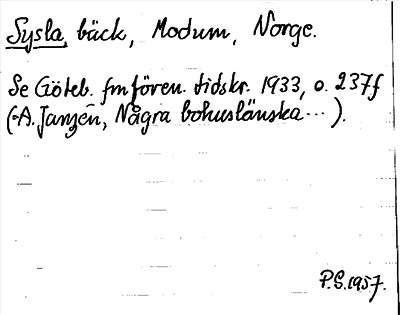 Sysla, bäck, Modum, Norge.
Se Göteb. fmfören. tidskr. 1933, s. 237f
(A. Janzén, Några bohuslänska...).
P.S. 1957.